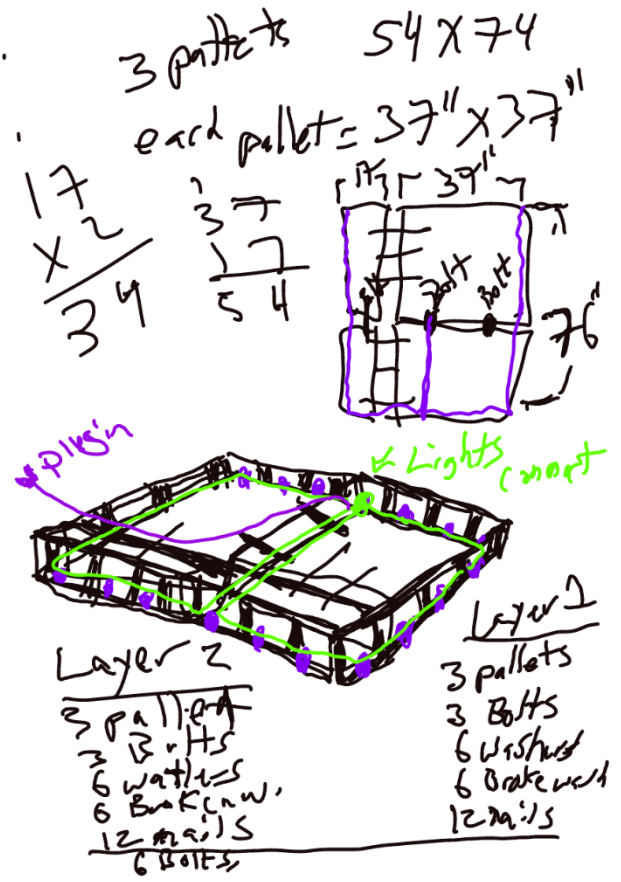 3 pallets 54 X 74
each pallet = 37" X 37"
17
X 2
34
1
37
17
54
17 37"
Bolt Bolt
76"
plugin
Lights
Connect
Layer 2
3 pallets
3 Bolts
6
6
12 nails
6 Bolts
Layer 1
3 pallets
3 Bolts
6 washers
6
12 nails